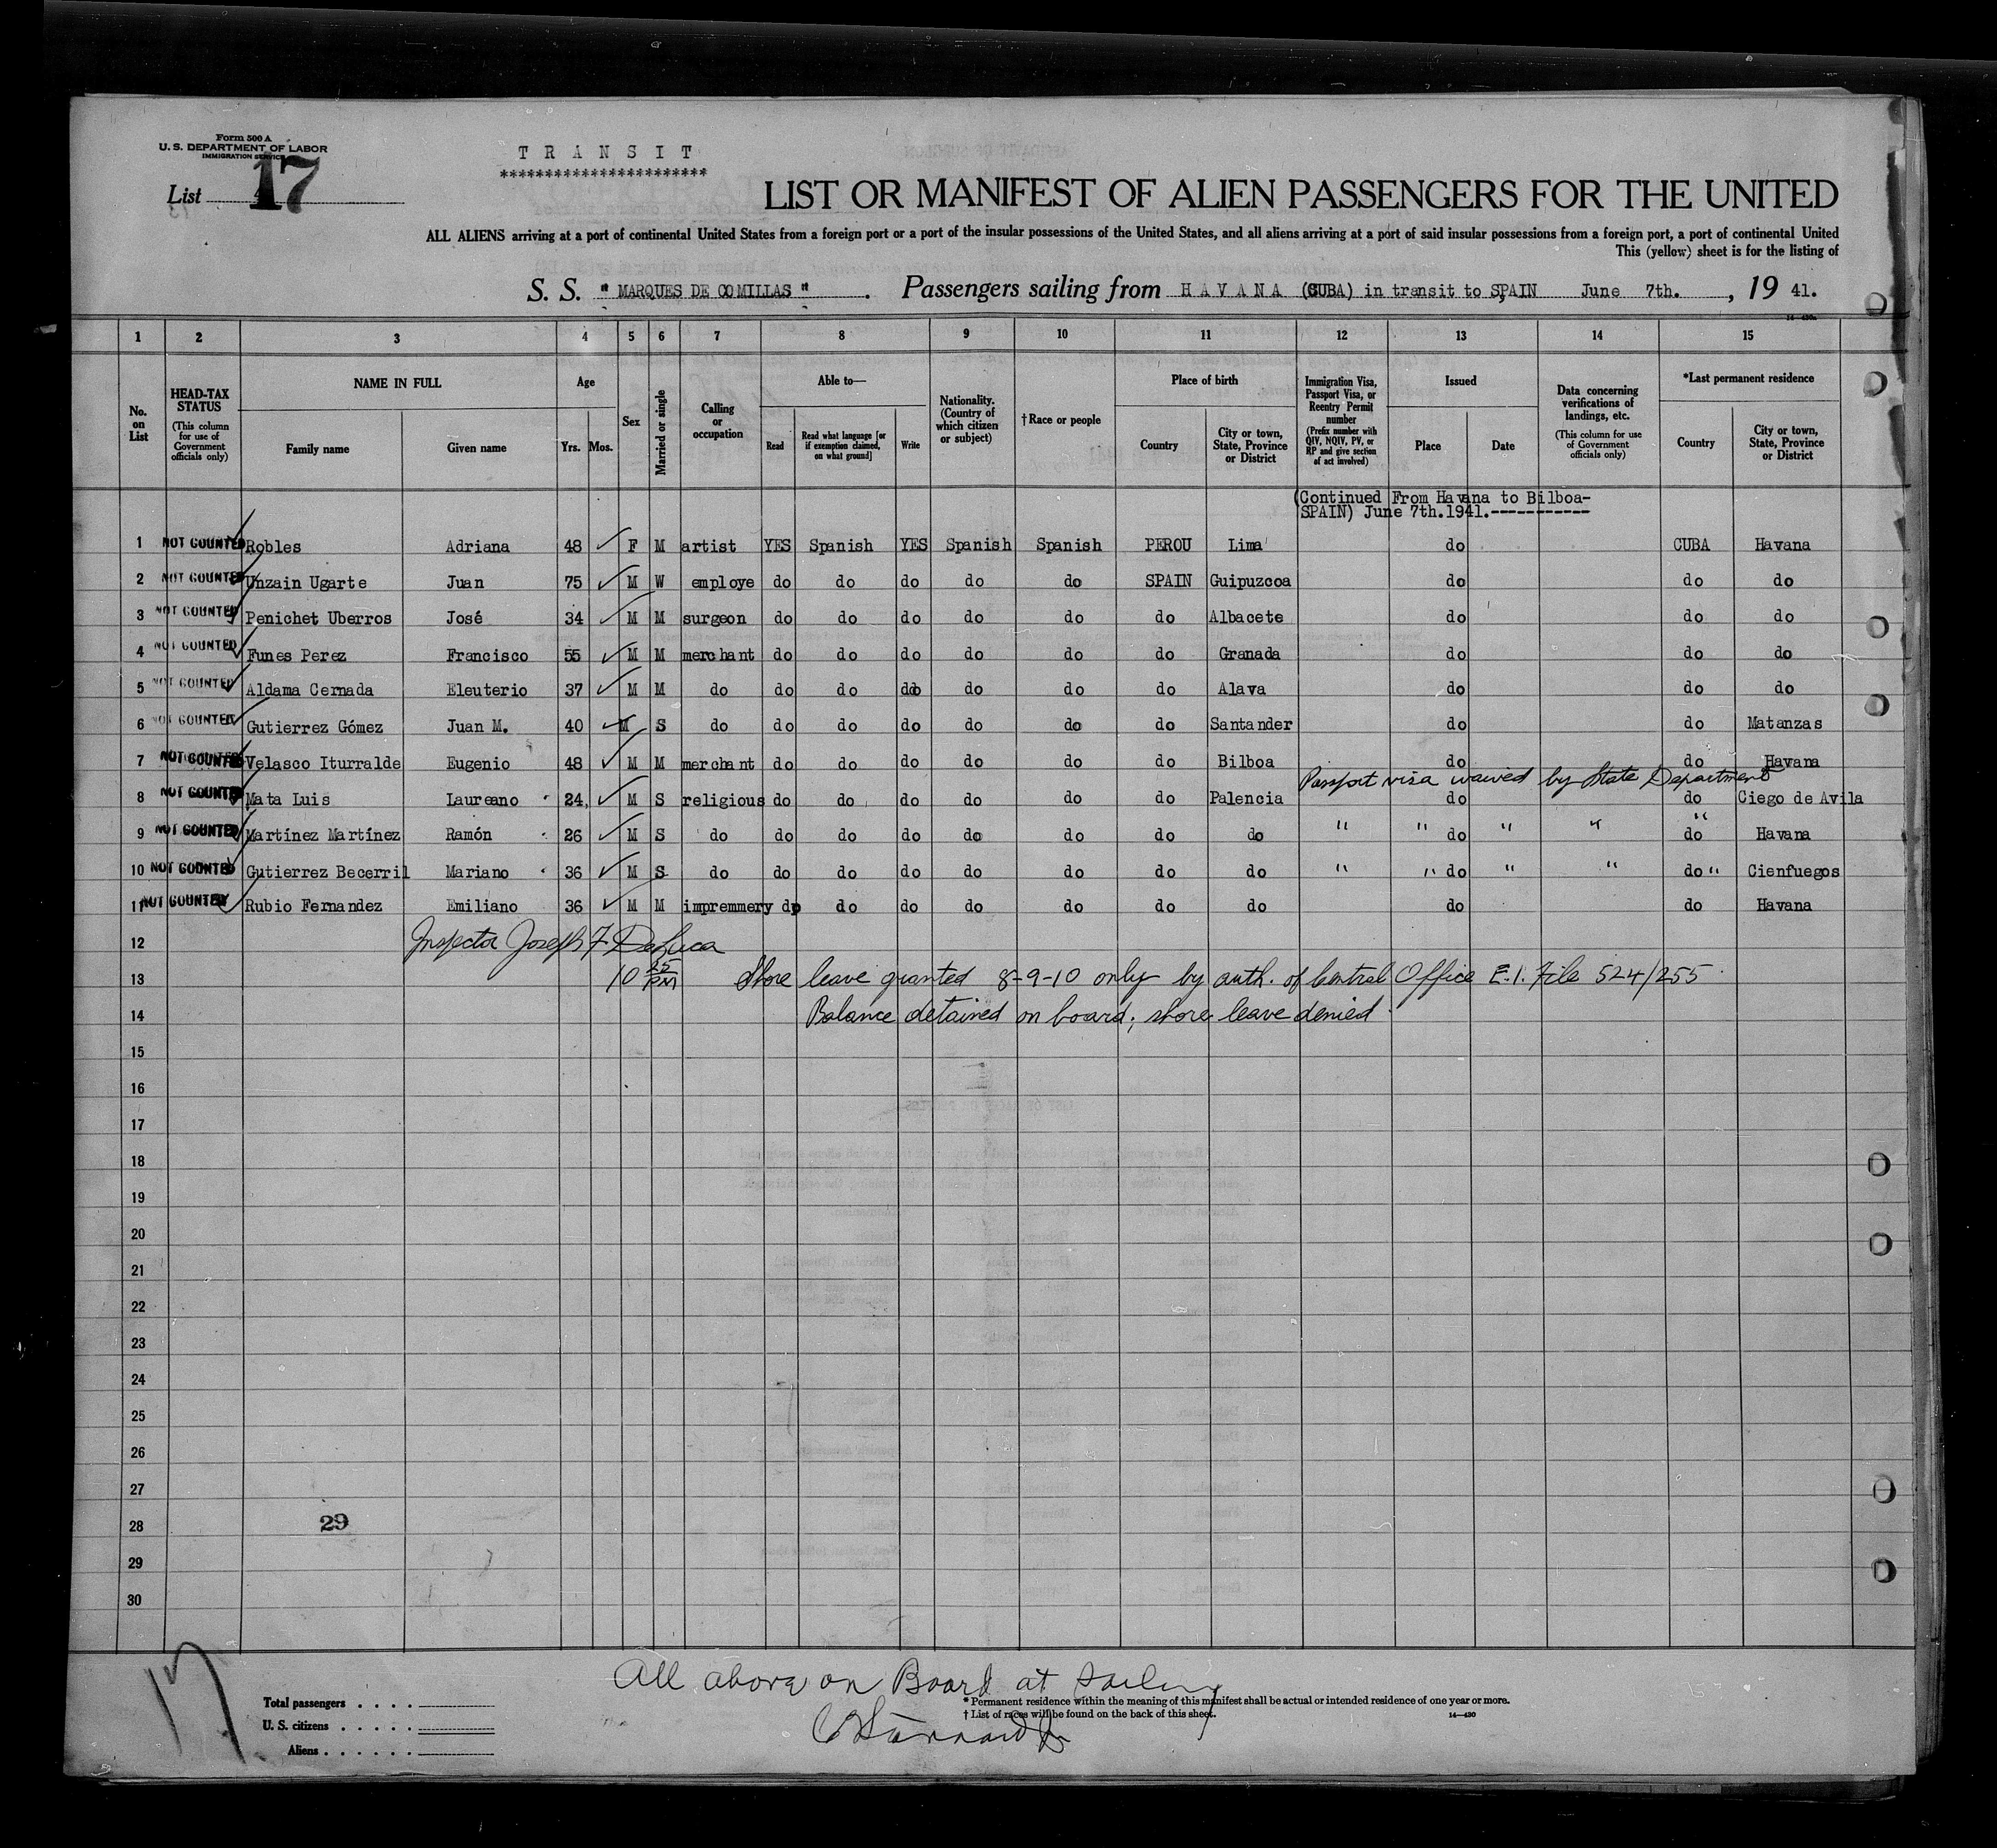 Form 500 A
U. S. DEPARTMENT OF LABOR
IMMIGRATION SERVICE
List 17
T R A N S I T
***********************
LIST OR MANIFEST OF ALIEN PASSENGERS FOR THE UNITED
ALL ALIENS arriving at a port of continental United States from a foreign port or a port of the insular possessions of the United States, and all aliens arriving at a port of said insular possessions from a foreign port, a port of continental United
This (yellow) sheet is for the listing of
S. S. " MARQUES DE COMILLAS " . Passengers sailing from H A V A N A (CUBA) in transit to SPAIN June 7th. , 19 41.
1 2 3 4 5 6 7 8 9 10 11 12 13 14 15
No. on List
HEAD-TAX STATUS (This column for use of Government officials only)
NAME IN FULL
Family name
Given name
Age
Yrs. Mos.
Sex
Married or single
Calling or occupation
Able to—
Read
Read what language [or if exemption claimed, on what ground]
Write
Nationality. (Country of which citizen or subject)
†Race or people
Place of birth
Country
City or town, State, Province or District
Immigration Visa, Passport Visa, or Reentry Permit number (Prefix number with QIV, NQIV, PV, or RP and give section of act involved)
Issued
Place
Date
Data concerning verifications of landings, etc. (This column for use of Government officials only)
*Last permanent residence
Country
City or town, State, Province or District
(Continued From Havana to Bilboa-
SPAIN) June 7th.1941.-----------
1 NOT COUNTED Robles Adriana 48 F M artist YES Spanish YES Spanish Spanish PEROU Lima do CUBA Havana
2 NOT COUNTED Unzain Ugarte Juan 75 M W employe do do do do do SPAIN Guipuzcoa do do do
3 NOT COUNTED Penichet Uberros José 34 M M surgeon do do do do do do Albacete do do do
4 NOT COUNTED Funes Perez Francisco 55 M M merchant do do do do do do Granada do do do
5 NOT COUNTED Aldama Cernada Eleuterio 37 M M do do do do do do do Alava do do do
6 NOT COUNTED Gutierrez Gómez Juan M. 40 M S do do do do do do do Santander do do Matanzas
7 NOT COUNTED Velasco Iturralde Eugenio 48 M M merchant do do do do do do Bilboa do do Havana
Passport visa waived by State Department
8 NOT COUNTED Mata Luis Laureano 24, M S religious do do do do do do Palencia do do Ciego de Avila
9 NOT COUNTED Martínez Martínez Ramón 26 M S do do do do do do do do " " do " " " do Havana
10 NOT COUNTED Gutierrez Becerril Mariano 36 M S do do do do do do do do " " do " " do " Cienfuegos
11 NOT COUNTED Rubio Fernandez Emiliano 36 M M impremmery do do do do do do do do do Havana
12 Inspector Joseph F DeLuca
13 10 25 PM Shore leave granted 8-9-10 only by auth. of Central Office E.I. File 524/255
14 Balance detained on board; shore leave denied
15
16
17
18
19
20
21
22
23
24
25
26
27
28 29
29
30
17
All above on Board at Sailing
Total passengers . . . .
U. S. citizens . . . . .
Aliens . . . . . .
* Permanent residence within the meaning of this manifest shall be actual or intended residence of one year or more.
† List of races will be found on the back of this sheet.
14—430